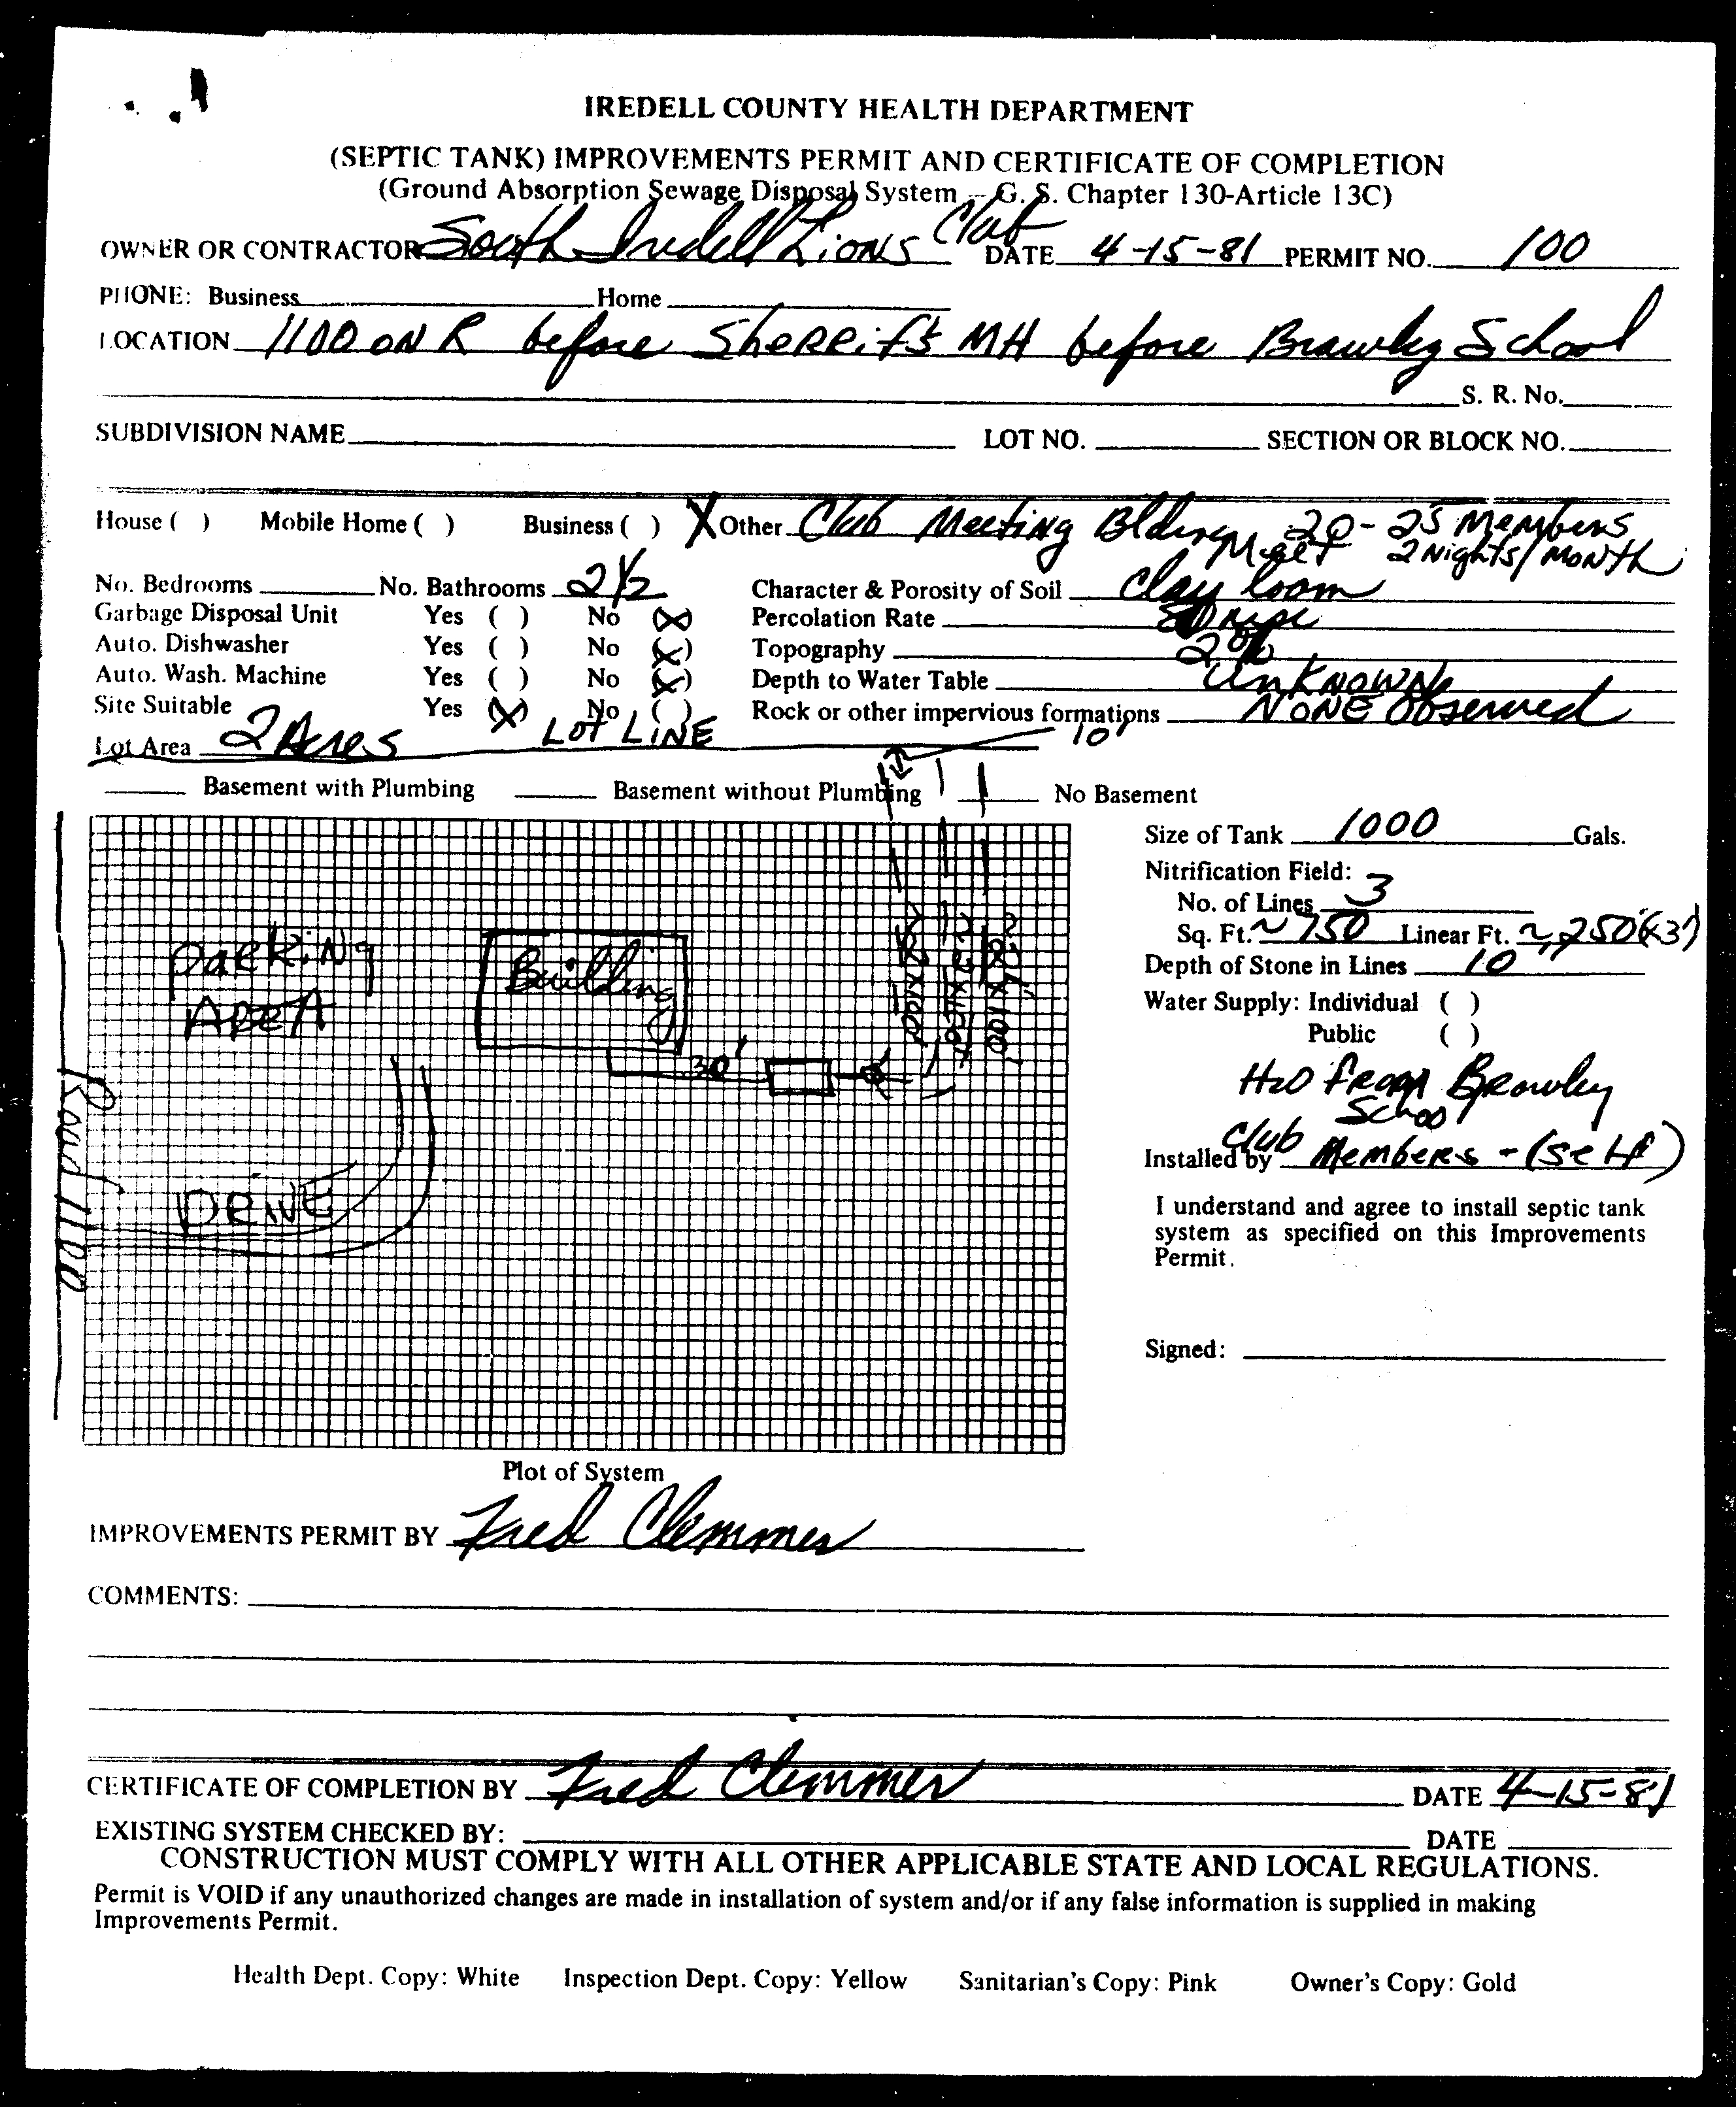 IREDELL COUNTY HEALTH DEPARTMENT
(SEPTIC TANK) IMPROVEMENTS PERMIT AND CERTIFICATE OF COMPLETION
(Ground Absorption Sewage Disposal System -- G. S. Chapter 130-Article 13C)
OWNER OR CONTRACTOR South Iredell Lions Club DATE 4-15-81 PERMIT NO. 100
PHONE: Business Home
LOCATION 1100 ON R before Sherrifs MH before Brawley School
S. R. No.
SUBDIVISION NAME LOT NO. SECTION OR BLOCK NO.
House ( ) Mobile Home ( ) Business ( ) X Other Club Meeting Blding 20-25 Members
Meet 2 Nights/Month
No. Bedrooms No. Bathrooms 2 1/2 Character & Porosity of Soil Clay loam
Garbage Disposal Unit Yes ( ) No (X) Percolation Rate
Auto. Dishwasher Yes ( ) No (X) Topography 2%
Auto. Wash. Machine Yes ( ) No (X) Depth to Water Table UnKNOWN
Site Suitable Yes (X) No ( ) Rock or other impervious formations NONE Observed
Lot Area 2 Acres Lot LINE 10'
Basement with Plumbing Basement without Plumbing No Basement
Size of Tank 1000 Gals.
Nitrification Field:
No. of Lines 3
Sq. Ft. ~ 750 Linear Ft. ~, 250 (x3')
Depth of Stone in Lines 10
Water Supply: Individual ( )
Public ( )
H2O from Brawley
School
Installed by Club Members - (self)
I understand and agree to install septic tank
system as specified on this Improvements
Permit.
Signed:
Parking
AREA
Building
30'
DRIVE
Road 1100
Plot of System
IMPROVEMENTS PERMIT BY Fred Clemmer
COMMENTS:
CERTIFICATE OF COMPLETION BY Fred Clemmer DATE 4-15-81
EXISTING SYSTEM CHECKED BY: DATE
CONSTRUCTION MUST COMPLY WITH ALL OTHER APPLICABLE STATE AND LOCAL REGULATIONS.
Permit is VOID if any unauthorized changes are made in installation of system and/or if any false information is supplied in making
Improvements Permit.
Health Dept. Copy: White Inspection Dept. Copy: Yellow Sanitarian's Copy: Pink Owner's Copy: Gold